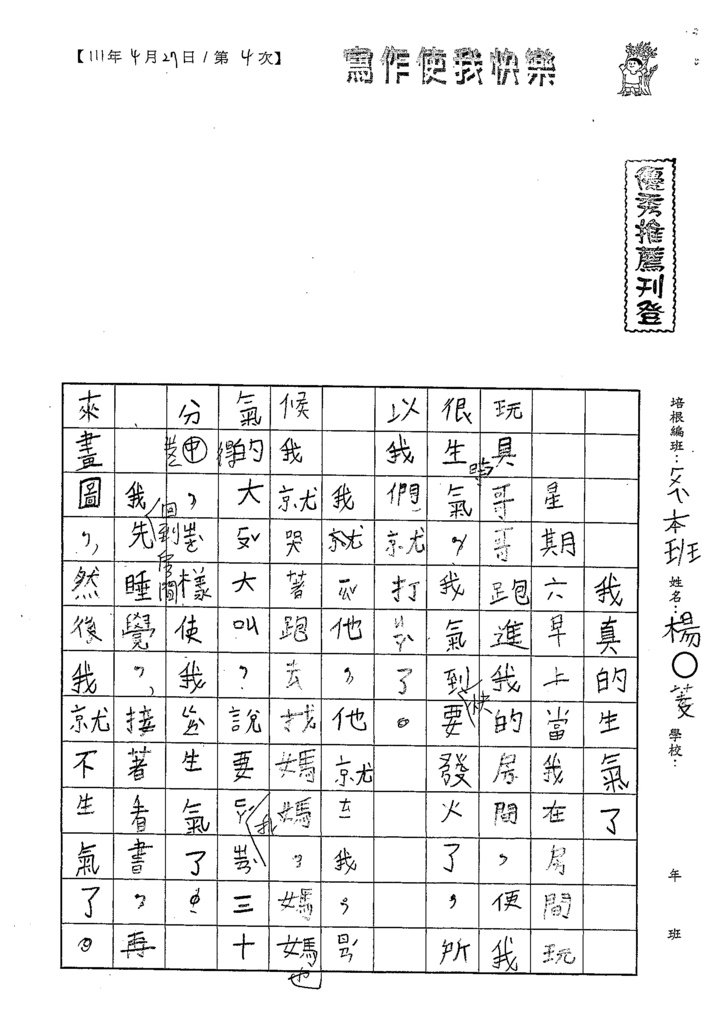 【111年4月27日/第4次】
寫作使我快樂
優秀推薦刊登
培根編班：ㄍㄣ本班 姓名：楊○菱 學校： 年 班
我真的生氣了
星期六早上當我在房間玩
玩具哥哥跑進我的房間，便我
很生氣，我氣到快要發火了，所
以我們就打ㄐㄧㄚˋ了。
我就ㄍㄣ他，他就ㄊㄧ我，
候我就哭著跑去找媽媽，媽媽也
氣得的大ㄕㄥ大叫，說要ㄈㄚˊ我 三十
分申，
樣使我 生氣了！
我先回到房間睡覺，接著看書，再
來畫圖，然後我就不生氣了。